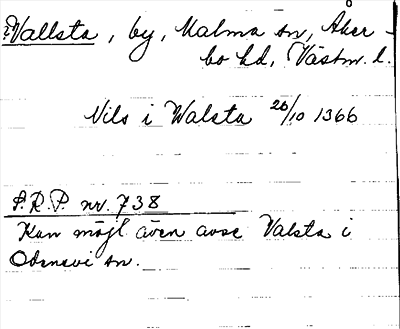 ?Vallsta, by, Malma sn, Åker-
bo hd, Västm. l.
Nils i Walsta 26/10 1366
S.R.P. nr. 738
Kan möjl även avse Valsta i
Odensvi sn.